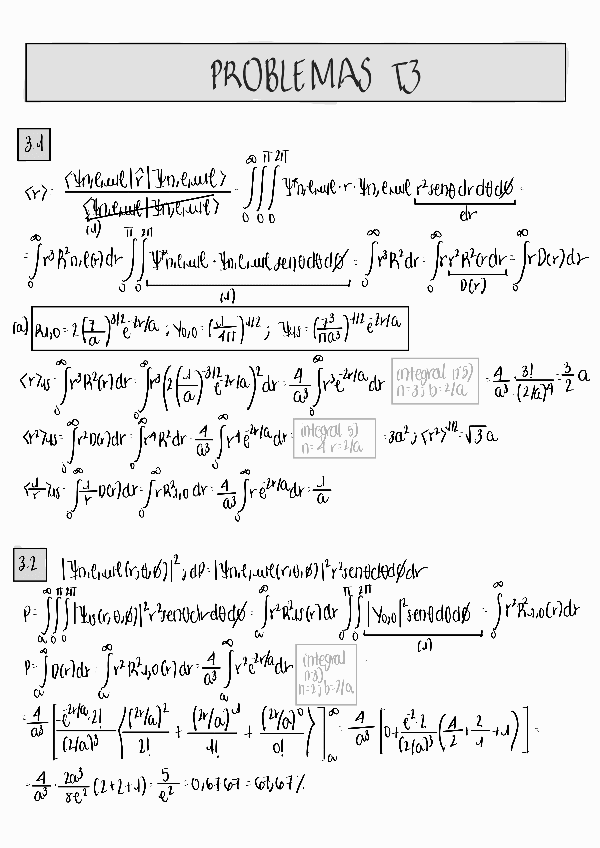 PROBLEMAS T3
3.1
⟨r⟩ = ⟨Ψn,l,ml | r̂ | Ψn,l,ml⟩ / ⟨Ψn,l,ml | Ψn,l,ml⟩ (1) = ∫₀^∞ ∫₀^π ∫₀^2π Ψ*n,l,ml · r · Ψn,l,ml r² senθ dr dθ dϕ =
dr
= ∫₀^∞ r³ R²n,l(r) dr ∫₀^π ∫₀^2π Ψ*n,l,ml · Ψn,l,ml senθ dθ dϕ = ∫₀^∞ r³ R² dr = ∫₀^∞ r r² R²(r) dr = ∫₀^∞ r D(r) dr
(1) D(r)
(a) R1,0 = 2 (Z/a)^3/2 e^-Zr/a ; Y0,0 = (1/4π)^1/2 ; Ψ1s = (Z³/πa³)^1/2 e^-Zr/a
⟨r⟩1s = ∫₀^∞ r³ R²(r) dr = ∫₀^∞ r³ (2 (1/a)^3/2 e^-Zr/a)² dr = 4/a³ ∫₀^∞ r³ e^-2r/a dr integral (15) n=3; b=2/a = 4/a³ · 3!/(2/a)⁴ = 3/2 a
⟨r²⟩1s = ∫₀^∞ r² D(r) dr = ∫₀^∞ r⁴ R² dr = 4/a³ ∫₀^∞ r⁴ e^-2r/a dr integral 5) n=4 r=2/a = 3a² ; ⟨r²⟩^1/2 = √3 a
⟨1/r⟩1s = ∫₀^∞ 1/r D(r) dr = ∫₀^∞ r R²1,0 dr = 4/a³ ∫₀^∞ r e^-2r/a dr = 1/a
3.2 |Ψn,l,ml(r,θ,ϕ)|² ; dP = |Ψn,l,ml(r,θ,ϕ)|² r² senθ dθ dϕ dr
P = ∫a^∞ ∫₀^π ∫₀^2π |Ψ1s(r,θ,ϕ)|² r² senθ dr dθ dϕ = ∫a^∞ r² R²1s(r) dr ∫₀^π ∫₀^2π |Y0,0|² senθ dθ dϕ = ∫a^∞ r² R²1,0(r) dr
(1)
P = ∫a^∞ D(r) dr = ∫a^∞ r² R²1,0(r) dr = 4/a³ ∫a^∞ r² e^-2r/a dr integral n3) n=2; b=2/a
= 4/a³ [ -e^-2r/a · 2! / (2/a)³ ⟨ (2r/a)²/2! + (2r/a)¹/1! + (2r/a)⁰/0! ⟩ ]a^∞ = 4/a³ [ 0 + e^-2 · 2/(2/a)³ (4/2 + 2/1 + 1) ] =
= 4/a³ · 2a³/8e² (2+2+1) = 5/e² = 0,6767 = 67,67%